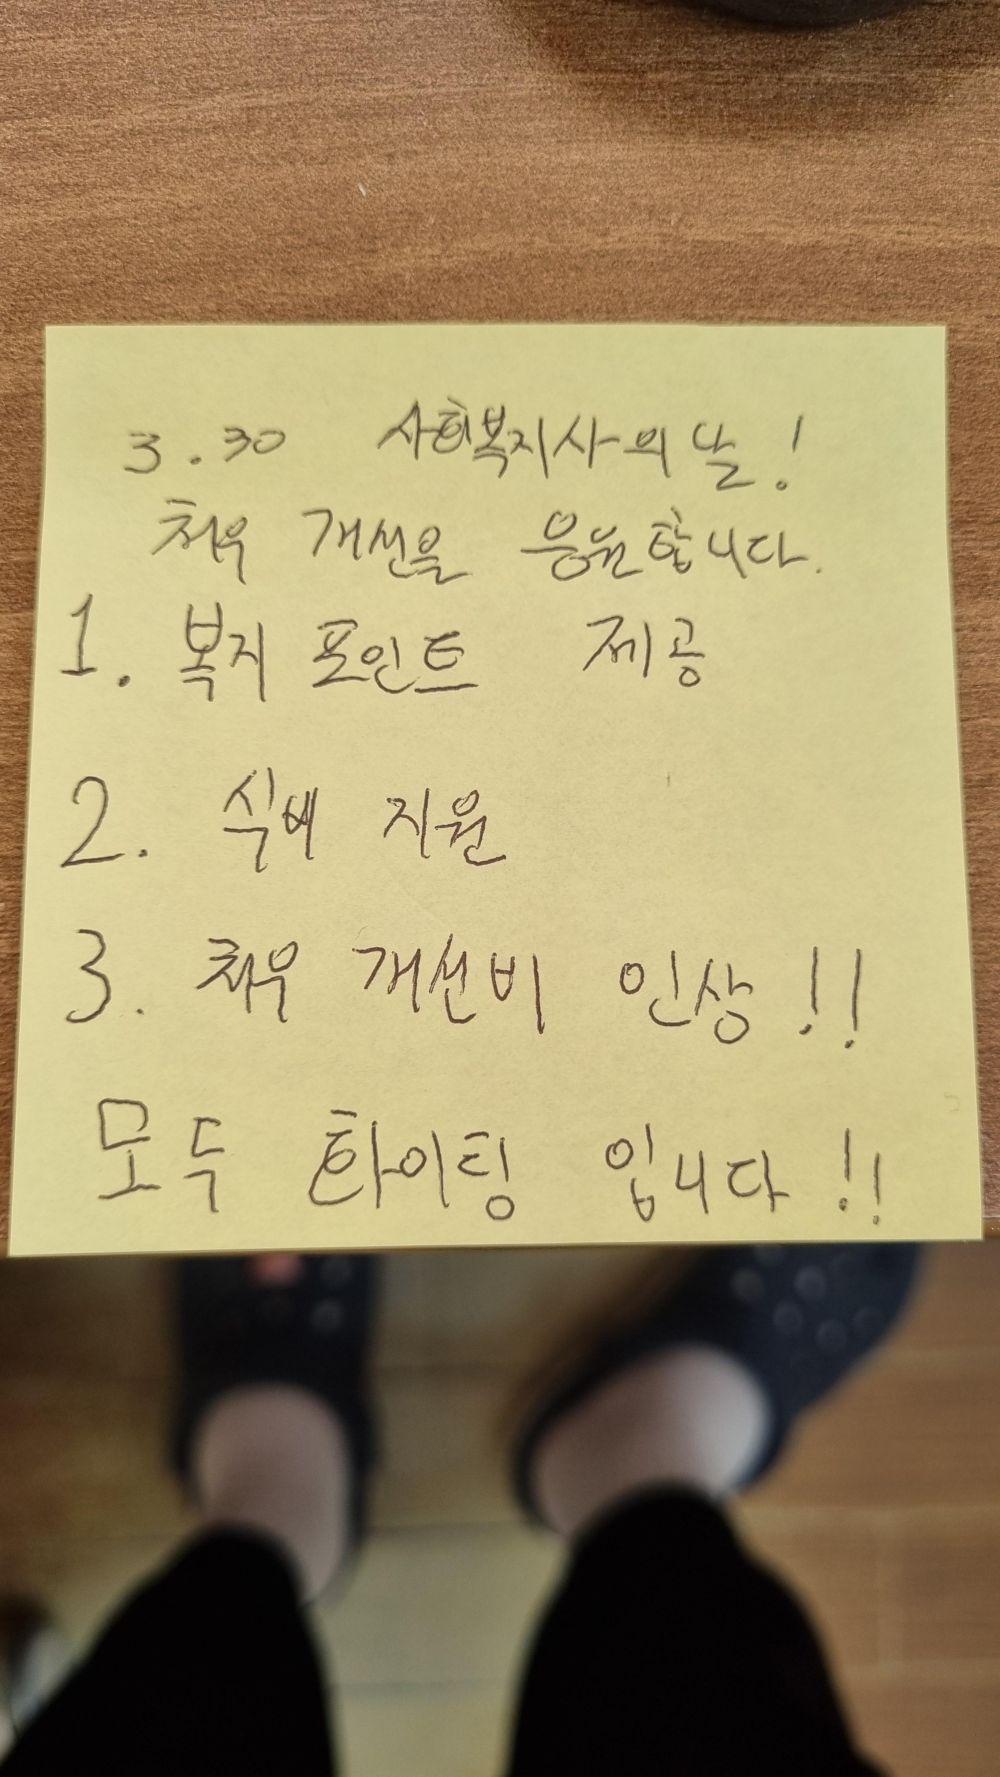 3.30 사회복지사의 날!
처우 개선을 응원합니다.
1. 복지 포인트 제공
2. 식비 지원
3. 처우 개선비 인상!!
모두 화이팅 입니다!!